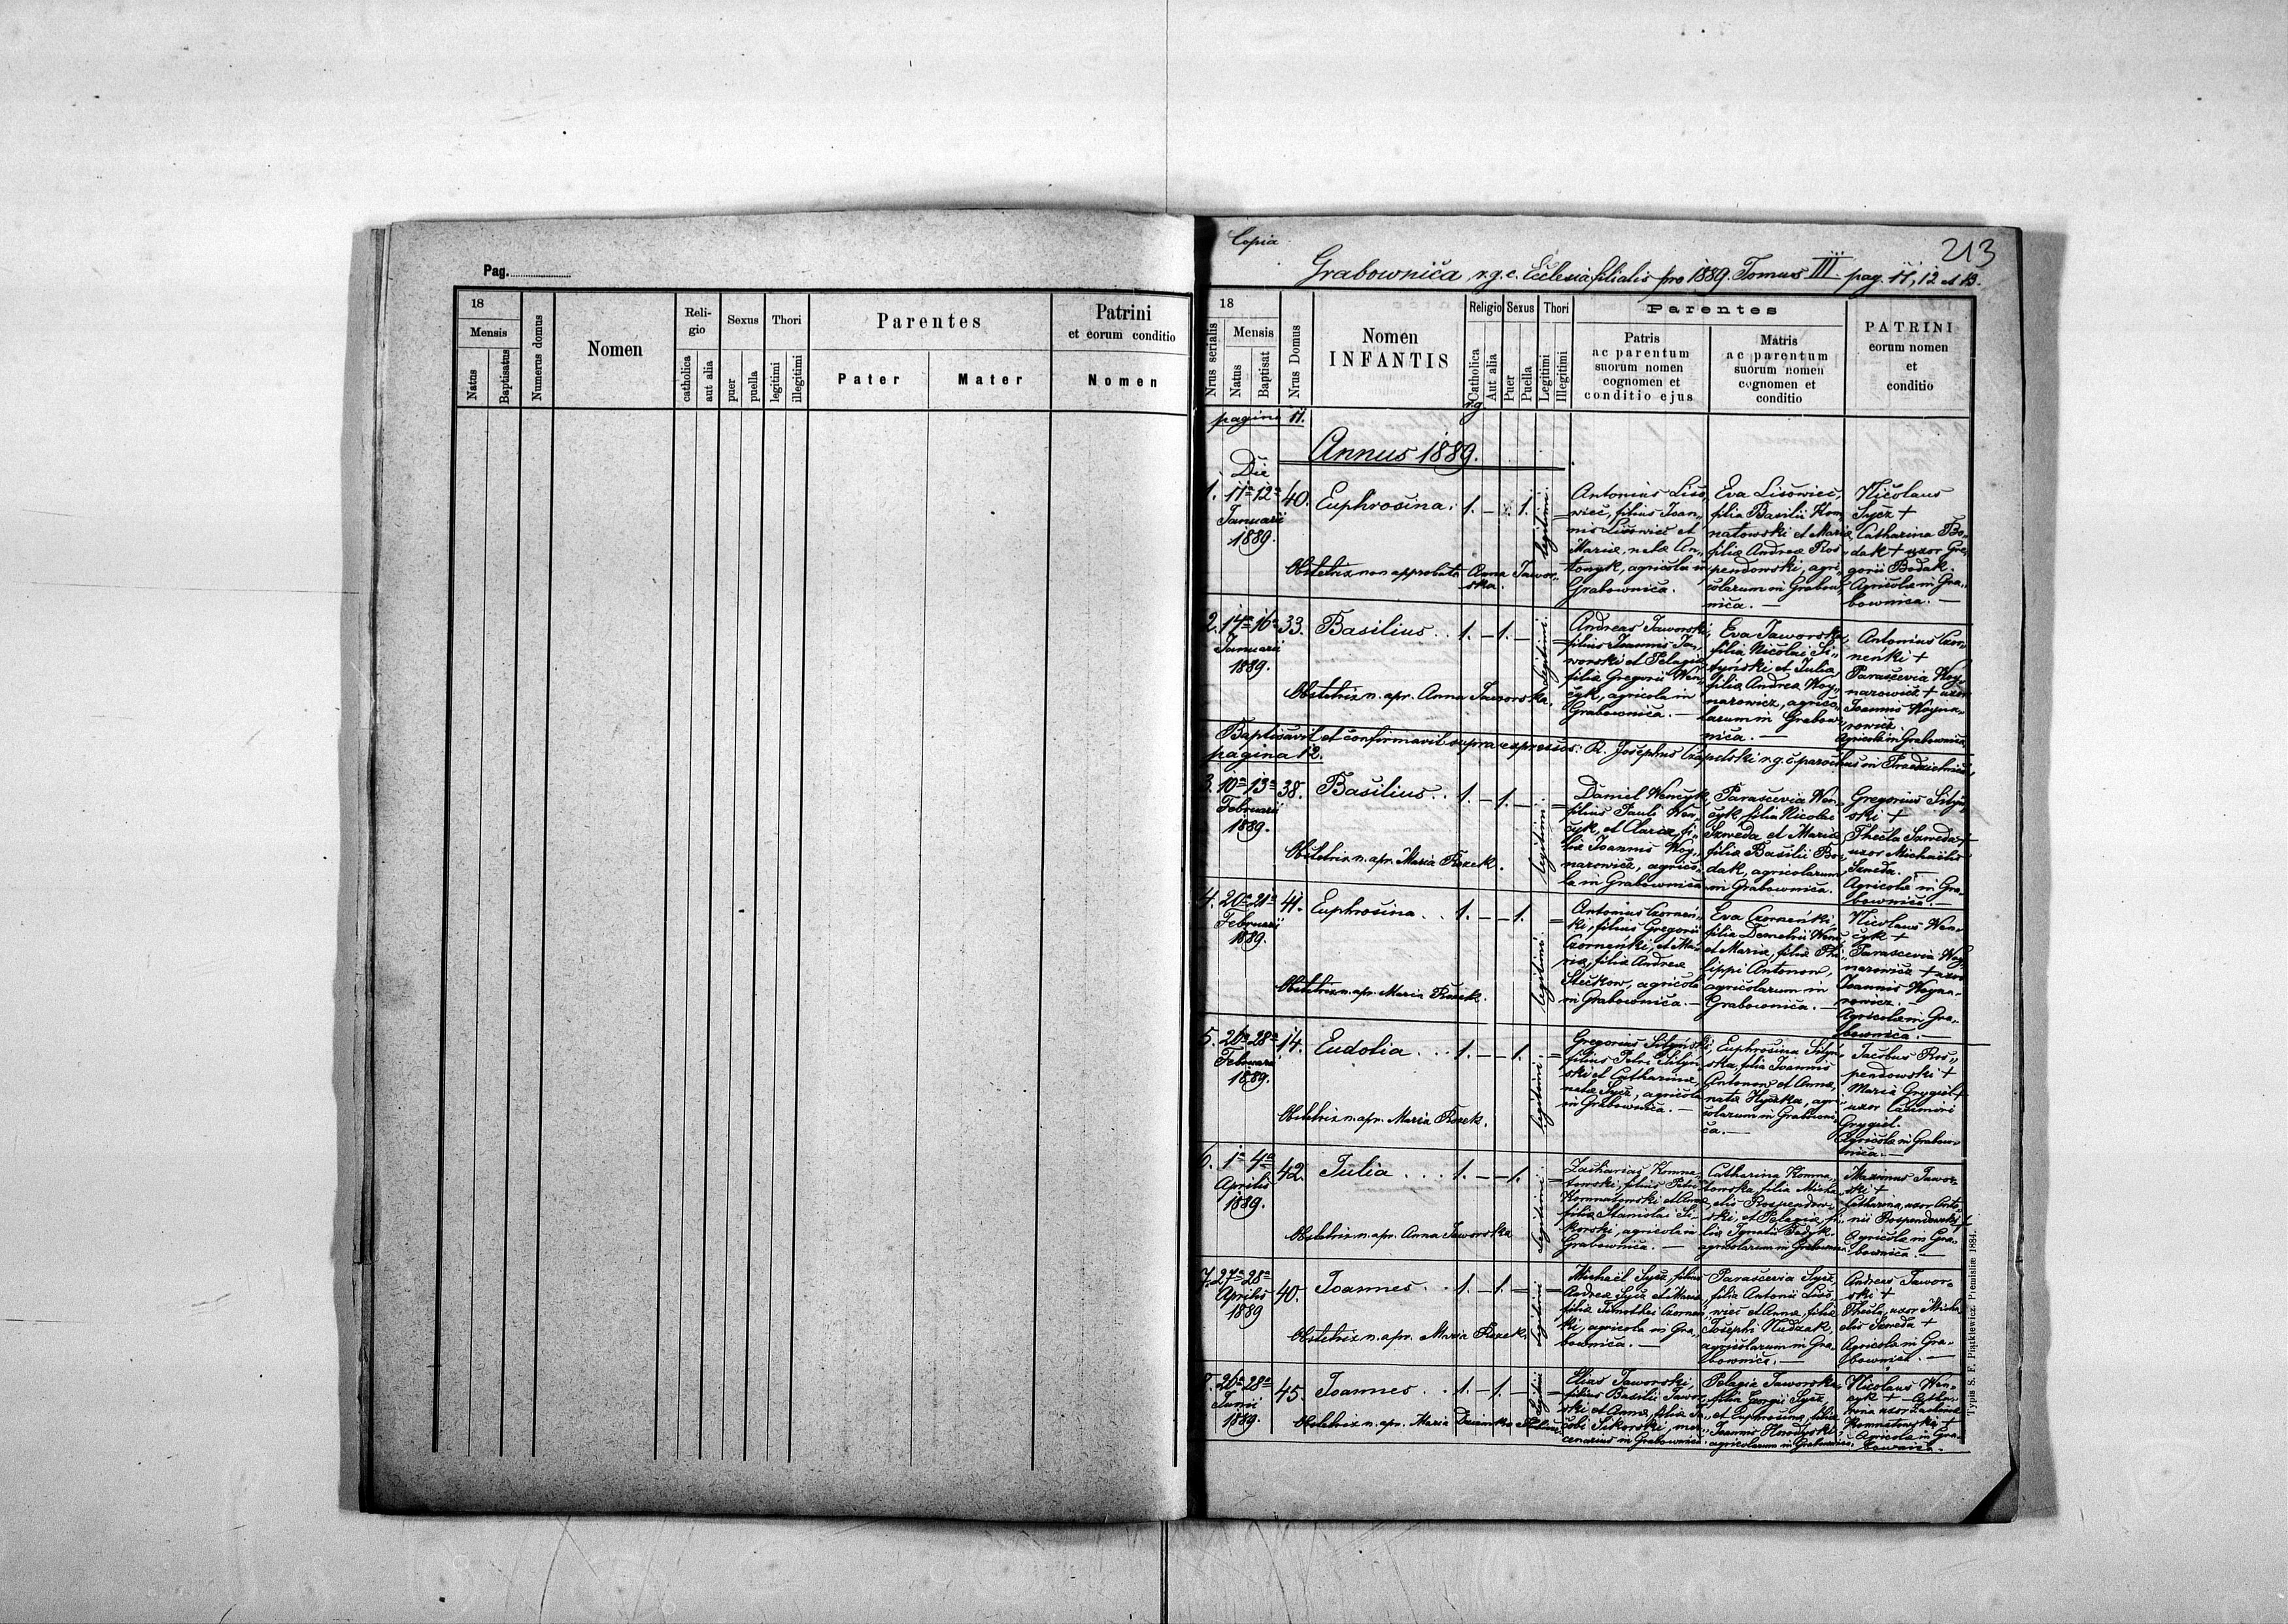 Pag.
18
Mensis
Natus
Baptisatus
Numerus domus
Nomen
Reli-
gio
catholica
aut alia
Sexus
puer
puella
Thori
legitimi
illegitimi
Parentes
Pater
Mater
Patrini
et eorum conditio
Nomen
Copia
213
Grabownica r.g.c. Ecclesia filialis pro 1889. Tomus III. pag. 11, 12 et 13.
18
Nrus serialis
Mensis
Natus
Baptisat
Nrus Domus
Nomen
INFANTIS
Religio
Catholica
Aut alia
Sexus
Puer
Puella
Thori
Legitimi
Illegitimi
Parentes
Patris
ac parentum
suorum nomen
cognomen et
conditio ejus
Matris
ac parentum
suorum nomen
cognomen et
conditio
PATRINI
eorum nomen
et
conditio
r.g
pagina 11.
Annus 1889.
Die
1. 11a 12a
Januarii
1889.
40.
Euphrosina.
1. — 1.
legitimi
Obstetrix non approbata Anna Jawor-
ska.
Antonius Liso„
wiec, filius Joan„
nis Lisowiec et
Mariæ, natæ An„
tonyk, agricola in
Grabownica.
Eva Lisowiec,
filia Basilii Kom„
natowski et Mariæ
filiæ Andreæ Ros„
pendowski, agri„
colarum in Grabow„
nica. —
Nicolaus
Sycz +
Catharina Bo„
dak + uxor Gre„
gorii Bodak.
Agricolæ in Gra„
bownica. —
2. 14a 16a
Januarii
1889.
33.
Basilius
1. — 1. —
legitimi
Obstetrix n. apr. Anna Jaworska.
Andreas Jaworski,
filius Joannis Ja„
worski et Pelagiæ
filiæ Gregorii Wen„
cyk, agricola in
Grabownica. —
Eva Jaworska,
filia Nicolai Si„
tyński et Julia
filiæ Andreæ Woy„
narowicz, agrico„
larum in Grabow„
nica. —
Antonius Czor„
neńki +
Parascevia Woy„
narowicz + uxor
Joannis Woyna„
rowicz.
Agricolæ in Grabownica.
Baptisavit et confirmavit supra expressos: R. Josephus Czapelski r.g.c. parochus in
pagina 12.
3. 10a 13a
Februarii
1889.
38.
Basilius
1. — 1. —
legitimi
Obstetrix n. apr. Maria
Daniel Wencyk,
filius Pauli Wen„
cyk, et Claræ, fi„
liæ Joannis Woy„
narowicz, agrico„
la in Grabownica
Parascevia Wen„
cyk, filia Nicolai
Szweda et Mariæ
filiæ Basilii Bo„
dak, agricolarum
in Grabownica.
Gregorius
ski +
Thecla Szweda +
uxor Michaëlis
Szweda. —
Agricolæ in Gra„
bownica. —
4. 20a 21a
Februarii
1889.
41.
Euphrosina
1. — — 1.
legitimi
Obstetrix n. apr. Maria
Antonius Czorneń„
ki, filius Gregorii
Czorneńki, et Ma„
riæ, filiæ Andreæ
Steckow, agricola
in Grabownica. —
Eva Czorneńki,
filia Demetrii
et Mariæ, filiæ Phi„
lippi Antonow,
agricolarum in
Grabownica. —
Nicolaus Wen„
cyk +
Parascevia Woy„
narowicz + uxor
Joannis Woyna„
rowicz. —
Agricolæ in Gra„
bownica. —
5. 26a 28a
Februarii
1889.
14.
Eudolia
1. — — 1.
legitimi
Obstetrix n. apr. Maria
Gregorius
filius Petri
ski et Catharinæ,
natæ Sycz, agricola
in Grabownica. —
Euphrosina
ska, filia Joannis
Antonow et Annæ,
natæ agri„
colarum in Grabowni„
ca. —
Jacobus Ros„
pendowski +
Maria Grygiel +
uxor Casimiri
Grygiel.
Agricolæ in Grabow„
nica. —
6. 1a 4a
Aprilis
1889.
42.
Julia
1. — — 1.
legitimi
Obstetrix n. apr. Anna Jaworska
Zacharias Komna„
towski, filius Petri
Komnatowski et Annæ
filiæ Stanislai Si„
korski, agricola in
Grabownica. —
Catharina Komna„
towska filia Micha„
elis Rospendow„
ski, et Pelagiæ, fi„
liæ Ignatii
agricolarum in Grabownica
Maximus Jawor„
ski +
Catharina, uxor Anto„
nii Rospendowski +
Agricolæ in Gra„
bownica. —
7. 27a 28a
Aprilis
1889
40.
Joannes
1. — 1. —
legitimi
Obstetrix n. apr. Maria
Michaël Sycz, filius
Andreæ Sycz et Mariæ
filiæ Timothei Czorneń„
ki, agricola in Gra„
bownica. —
Parascevia Sycz,
filia Antonii Liso„
wiec et Annæ, filiæ
Josephi Nudzak,
agricolarum in Gra„
bownica. —
Andreas Jawor„
ski +
Thecla, uxor Micha„
elis Szweda +
Agricolæ in Gra„
bownica. —
8. 26a 28a
Junii
1889.
45.
Joannes
1. — 1. —
legitimi
Obstetrix n. apr. Maria
Elias Jaworski,
filius Basilii Jawor„
ski et Annæ, filiæ Ja„
cobi Sikorski, mer„
cenarius in Grabownica.
Pelagia Jaworska,
filia Georgii Sycz,
et Euphrosinæ, filiæ
Joannis
agricolarum in Grabownica.
Nicolaus Wen„
cyk + Catha„
rina uxor Zachariæ
Komnatowski +
Agricolæ in Gra„
bownica. —
Typis S. F. Piątkiewicz Premisliæ 1884.